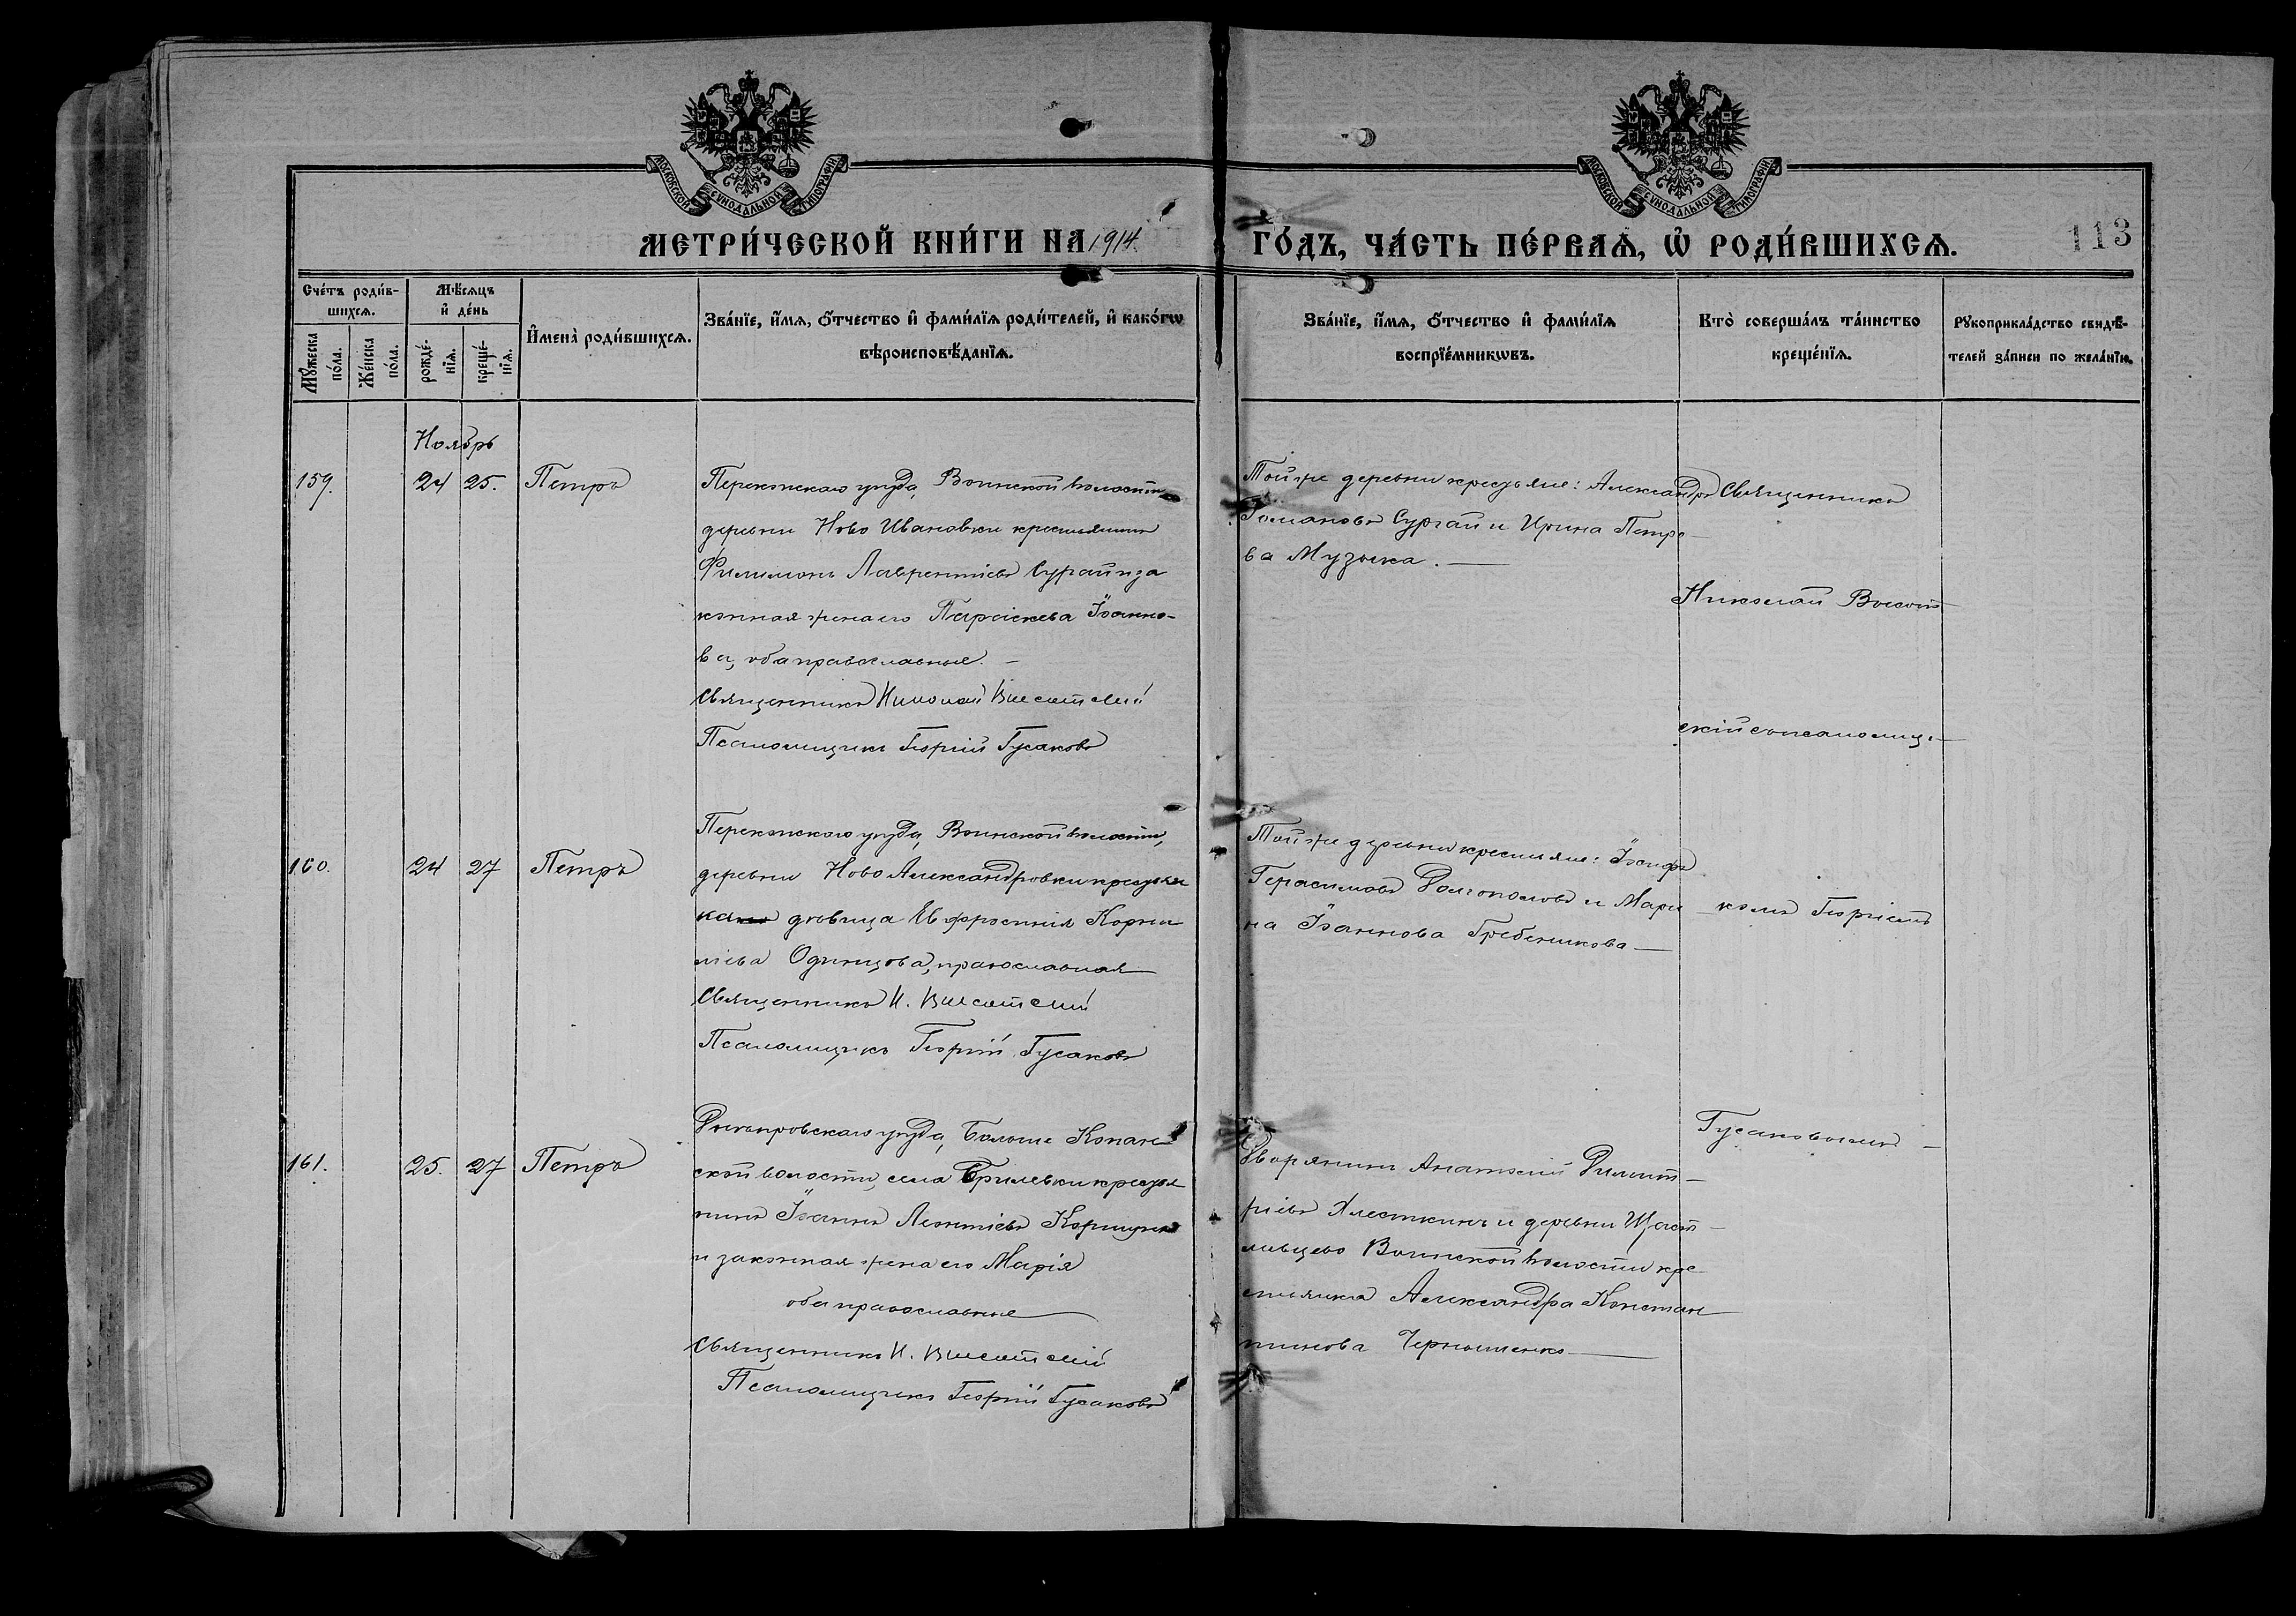 МОСКОВСКОЙ СѴНОДАЛЬНОЙ ТИПОГРАФІИ
МОСКОВСКОЙ СѴНОДАЛЬНОЙ ТИПОГРАФІИ
МЕТРИ́ЧЕСКОЙ КНИ́ГИ НА 1914. ГО́ДЪ, ЧА́СТЬ ПЕ́РВАѦ, Ѡ РОДИ́ВШИХСѦ.
113
Сче́тъ роди́в-
шихсѧ.
Мѣ́сѧцъ
и҆ де́нь
Мꙋ́жеска
по́ла.
Же́нска
по́ла.
рожде́-
нїѧ.
креще́-
нїѧ.
И҆мена̀ роди́вшихсѧ.
Зва́нїе, и҆́мѧ, ѻ҆́тчество и҆ фами́лїѧ роди́телей, и҆ како́гѡ
вѣроисповѣ́данїѧ.
Зва́нїе, и҆́мѧ, ѻ҆́тчество и҆ фами́лїѧ
воспрїе́мникѡвъ.
Кто̀ соверша́лъ та́инство
креще́нїѧ.
Рꙋкоприкла́дство свидѣ́-
телей за́писи по жела́нїю.
Ноябрь
159.
24
25.
Петръ
Перекопскаго уѣзда, Воинской волости
деревни Ново Ивановки крестьянинъ
Филимонъ Лаврентіевъ Сургай и за
конная жена его Параскева Іоанно-
ва, оба православные. —
Священникъ Николай Высотскій
Псаломщикъ Георгій Гусаковъ
Той же деревни крестьяне: Александръ
Романовъ Сургай и Ирина Петро-
ва Музыка. —
Священникъ
Николай Высот-
скій съ псаломщи-
160.
24
27
Петръ
Перекопскаго уѣзда, Воинской волости,
деревни Ново Александровки крестьян
ка дѣвица Евфросинія Корни
ліева Одинцова, православная
Священникъ Н. Высотскій
Псаломщикъ Георгій Гусаковъ
Той же деревни крестьяне: Іосифъ
Герасимовъ Долгополовъ и Мари
на Іоаннова Гребеникова —
комъ Георгіемъ
161.
25.
27
Петръ
Днѣпровскаго уѣзда, Больше Копан
ской волости, села Брилевки крестья
нинъ Іоаннъ Леонтіевъ
и законная жена его Марія
оба православные
Священникъ Н. Высотскій
Псаломщикъ Георгій Гусаковъ
Дворянинъ Анатолій Димит-
ріевъ Хлесткинъ и деревни Щаст-
ливцево Воинской волости кре-
стьянка Александра Констан
тинова Чернышенко —
Гусаковымъ —